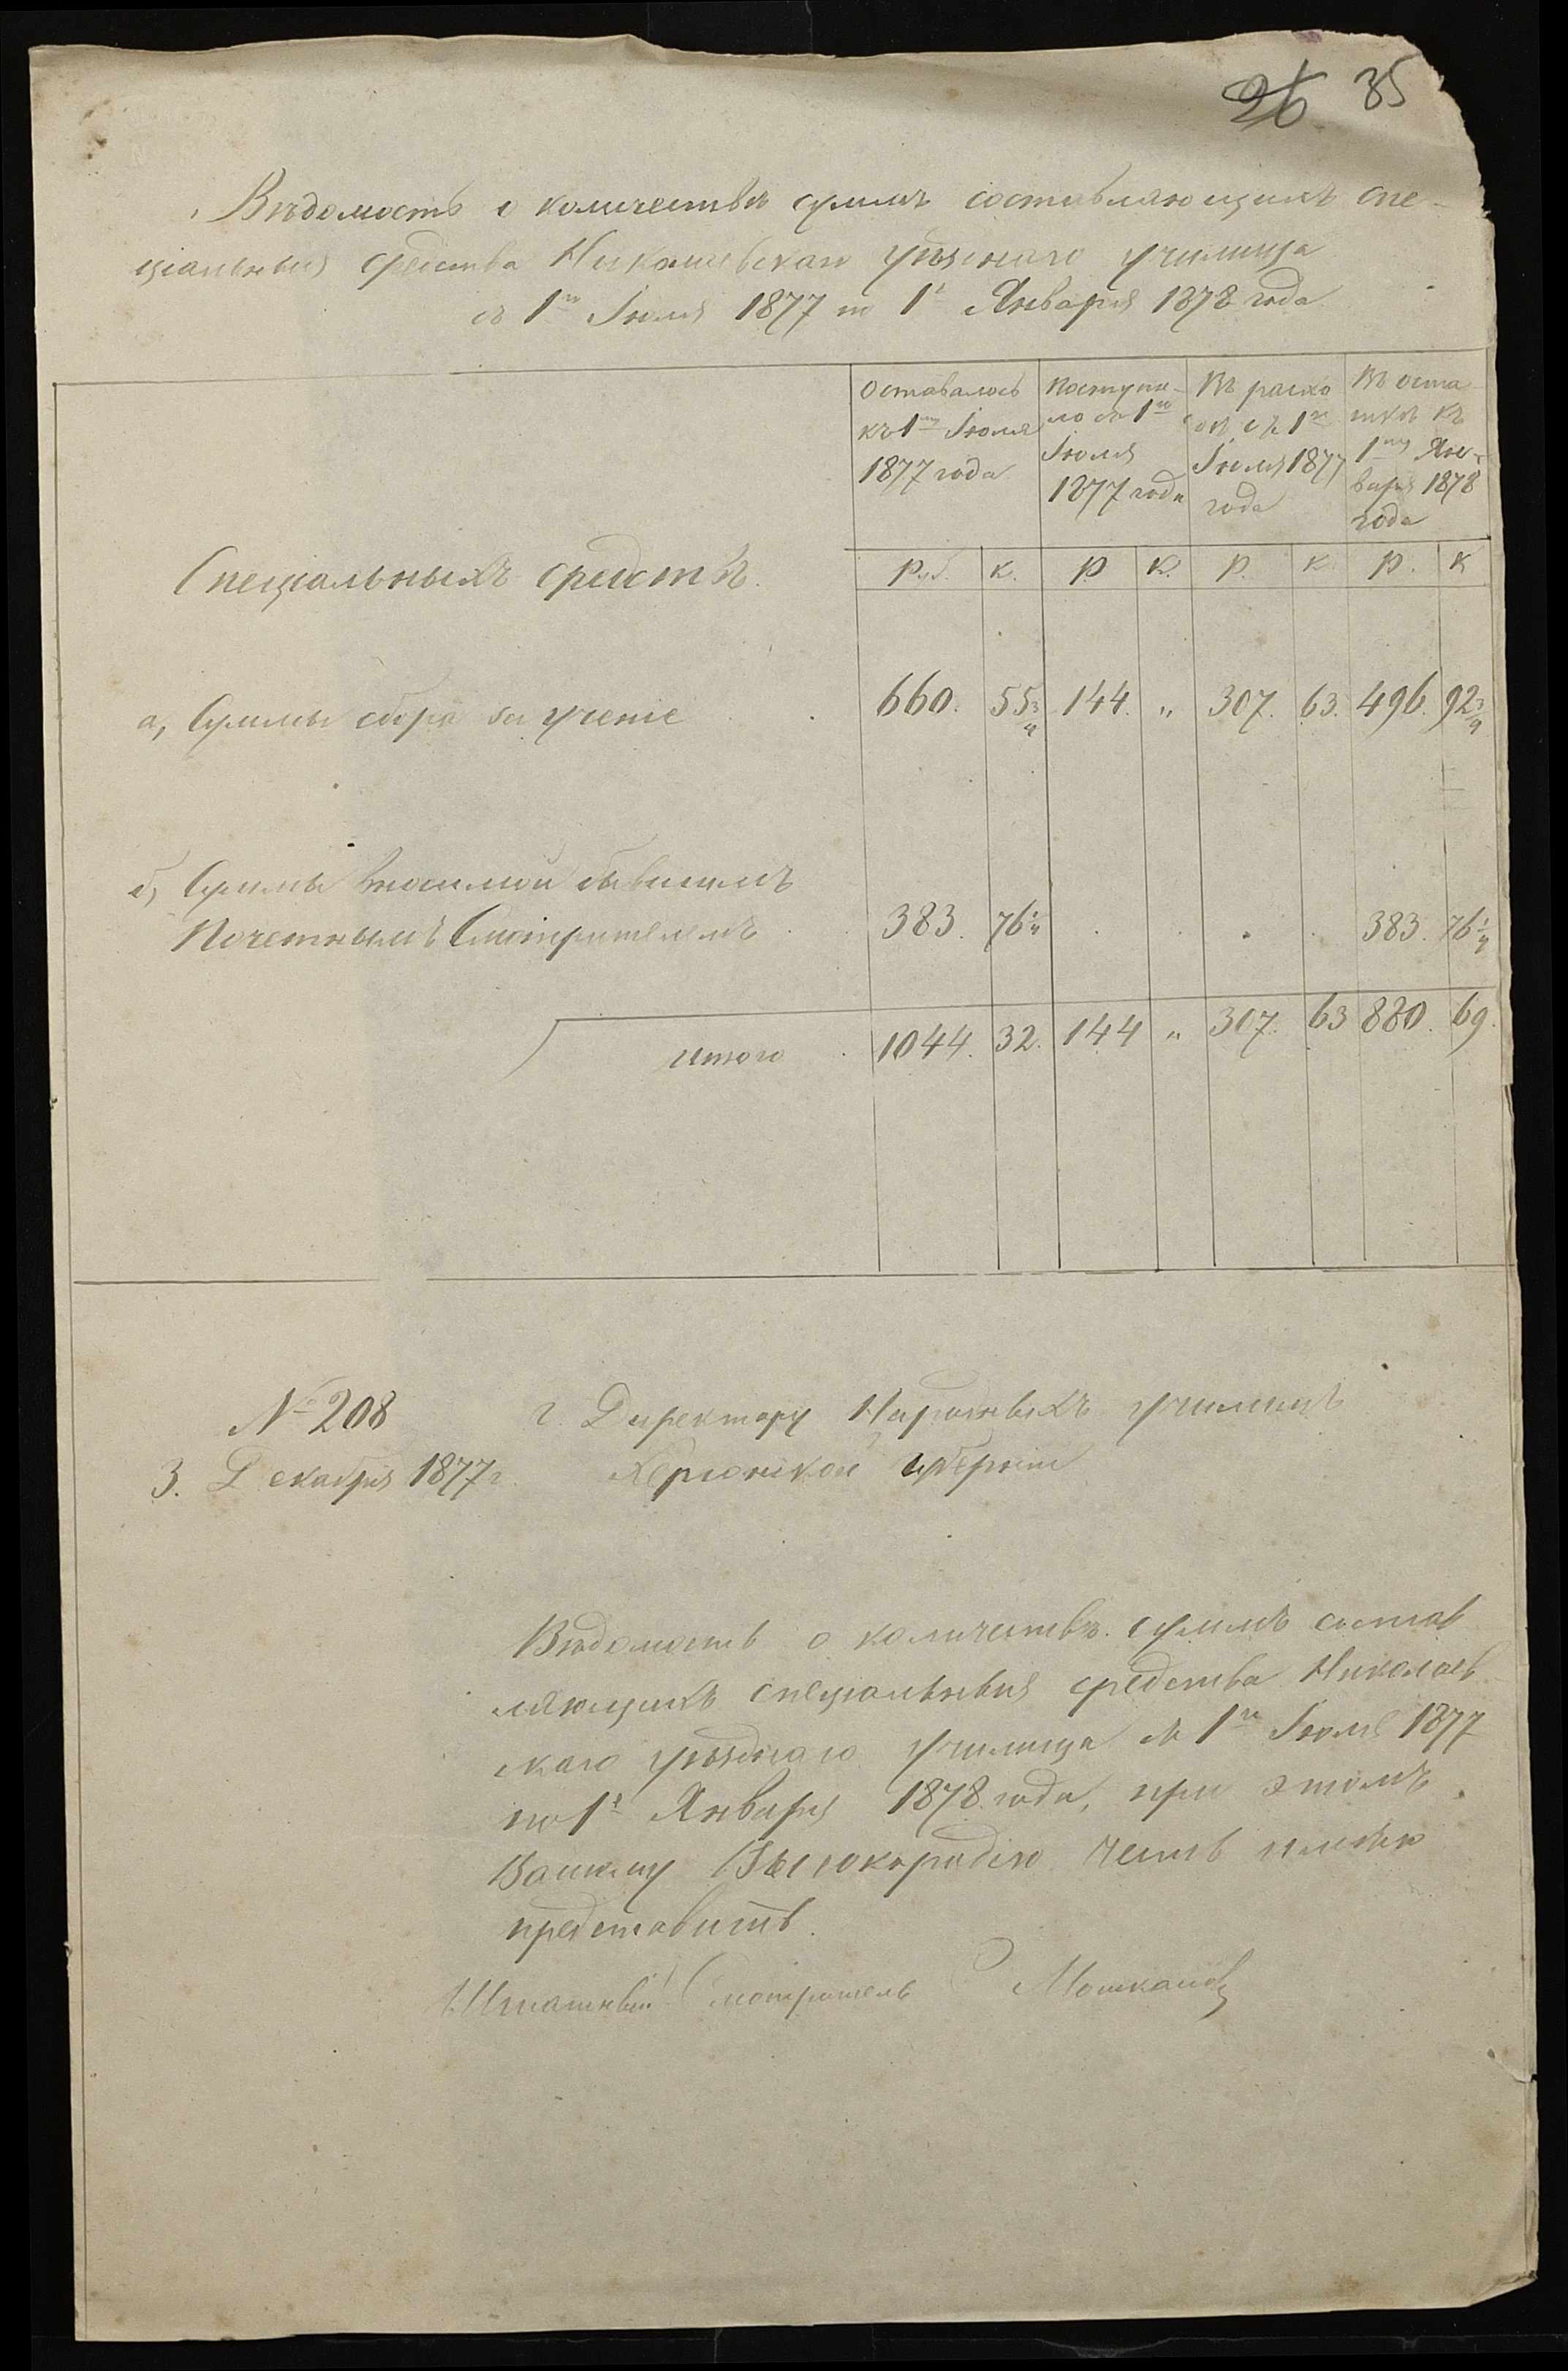 26 35
Вѣдомость о количествѣ суммъ составляющихъ спе-
ціальныя средства Николаевскаго уѣзднаго училища
съ 1го Іюля 1877 по 1е Января 1878 года
Оставалось
къ 1му Іюля
1877 года
Поступи-
ло съ 1го
Іюля
1877 года
Въ расхо
дѣ съ 1го
Іюля 1877
года
Въ оста
ткѣ къ
1му Ян-
варя 1878
года
Спеціальныхъ средствъ.
Руб. К. Р К. Р. К. Р. К
а, Суммы сбора за ученіе 660. 55 3/4 144. " 307. 63. 496. 92 3/4
б, Суммы вносимой бывшимъ
Почетнымъ Смотрителемъ 383. 76 1/4 . . . . 383. 76 1/4
Итого 1044. 32. 144 " 307. 63 880. 69.
№ 208
3. Декабря 1877 г.
г. Директору Народныхъ училищъ
Херсонской губерніи
Вѣдомость о количествѣ суммъ состав
ляющихъ спеціальныя средства Николаев
скаго уѣзднаго училища съ 1го Іюля 1877
по 1е Января 1878 года, при этомъ
Вашему Высокородію честь имѣю
представить.
Штатный Смотритель